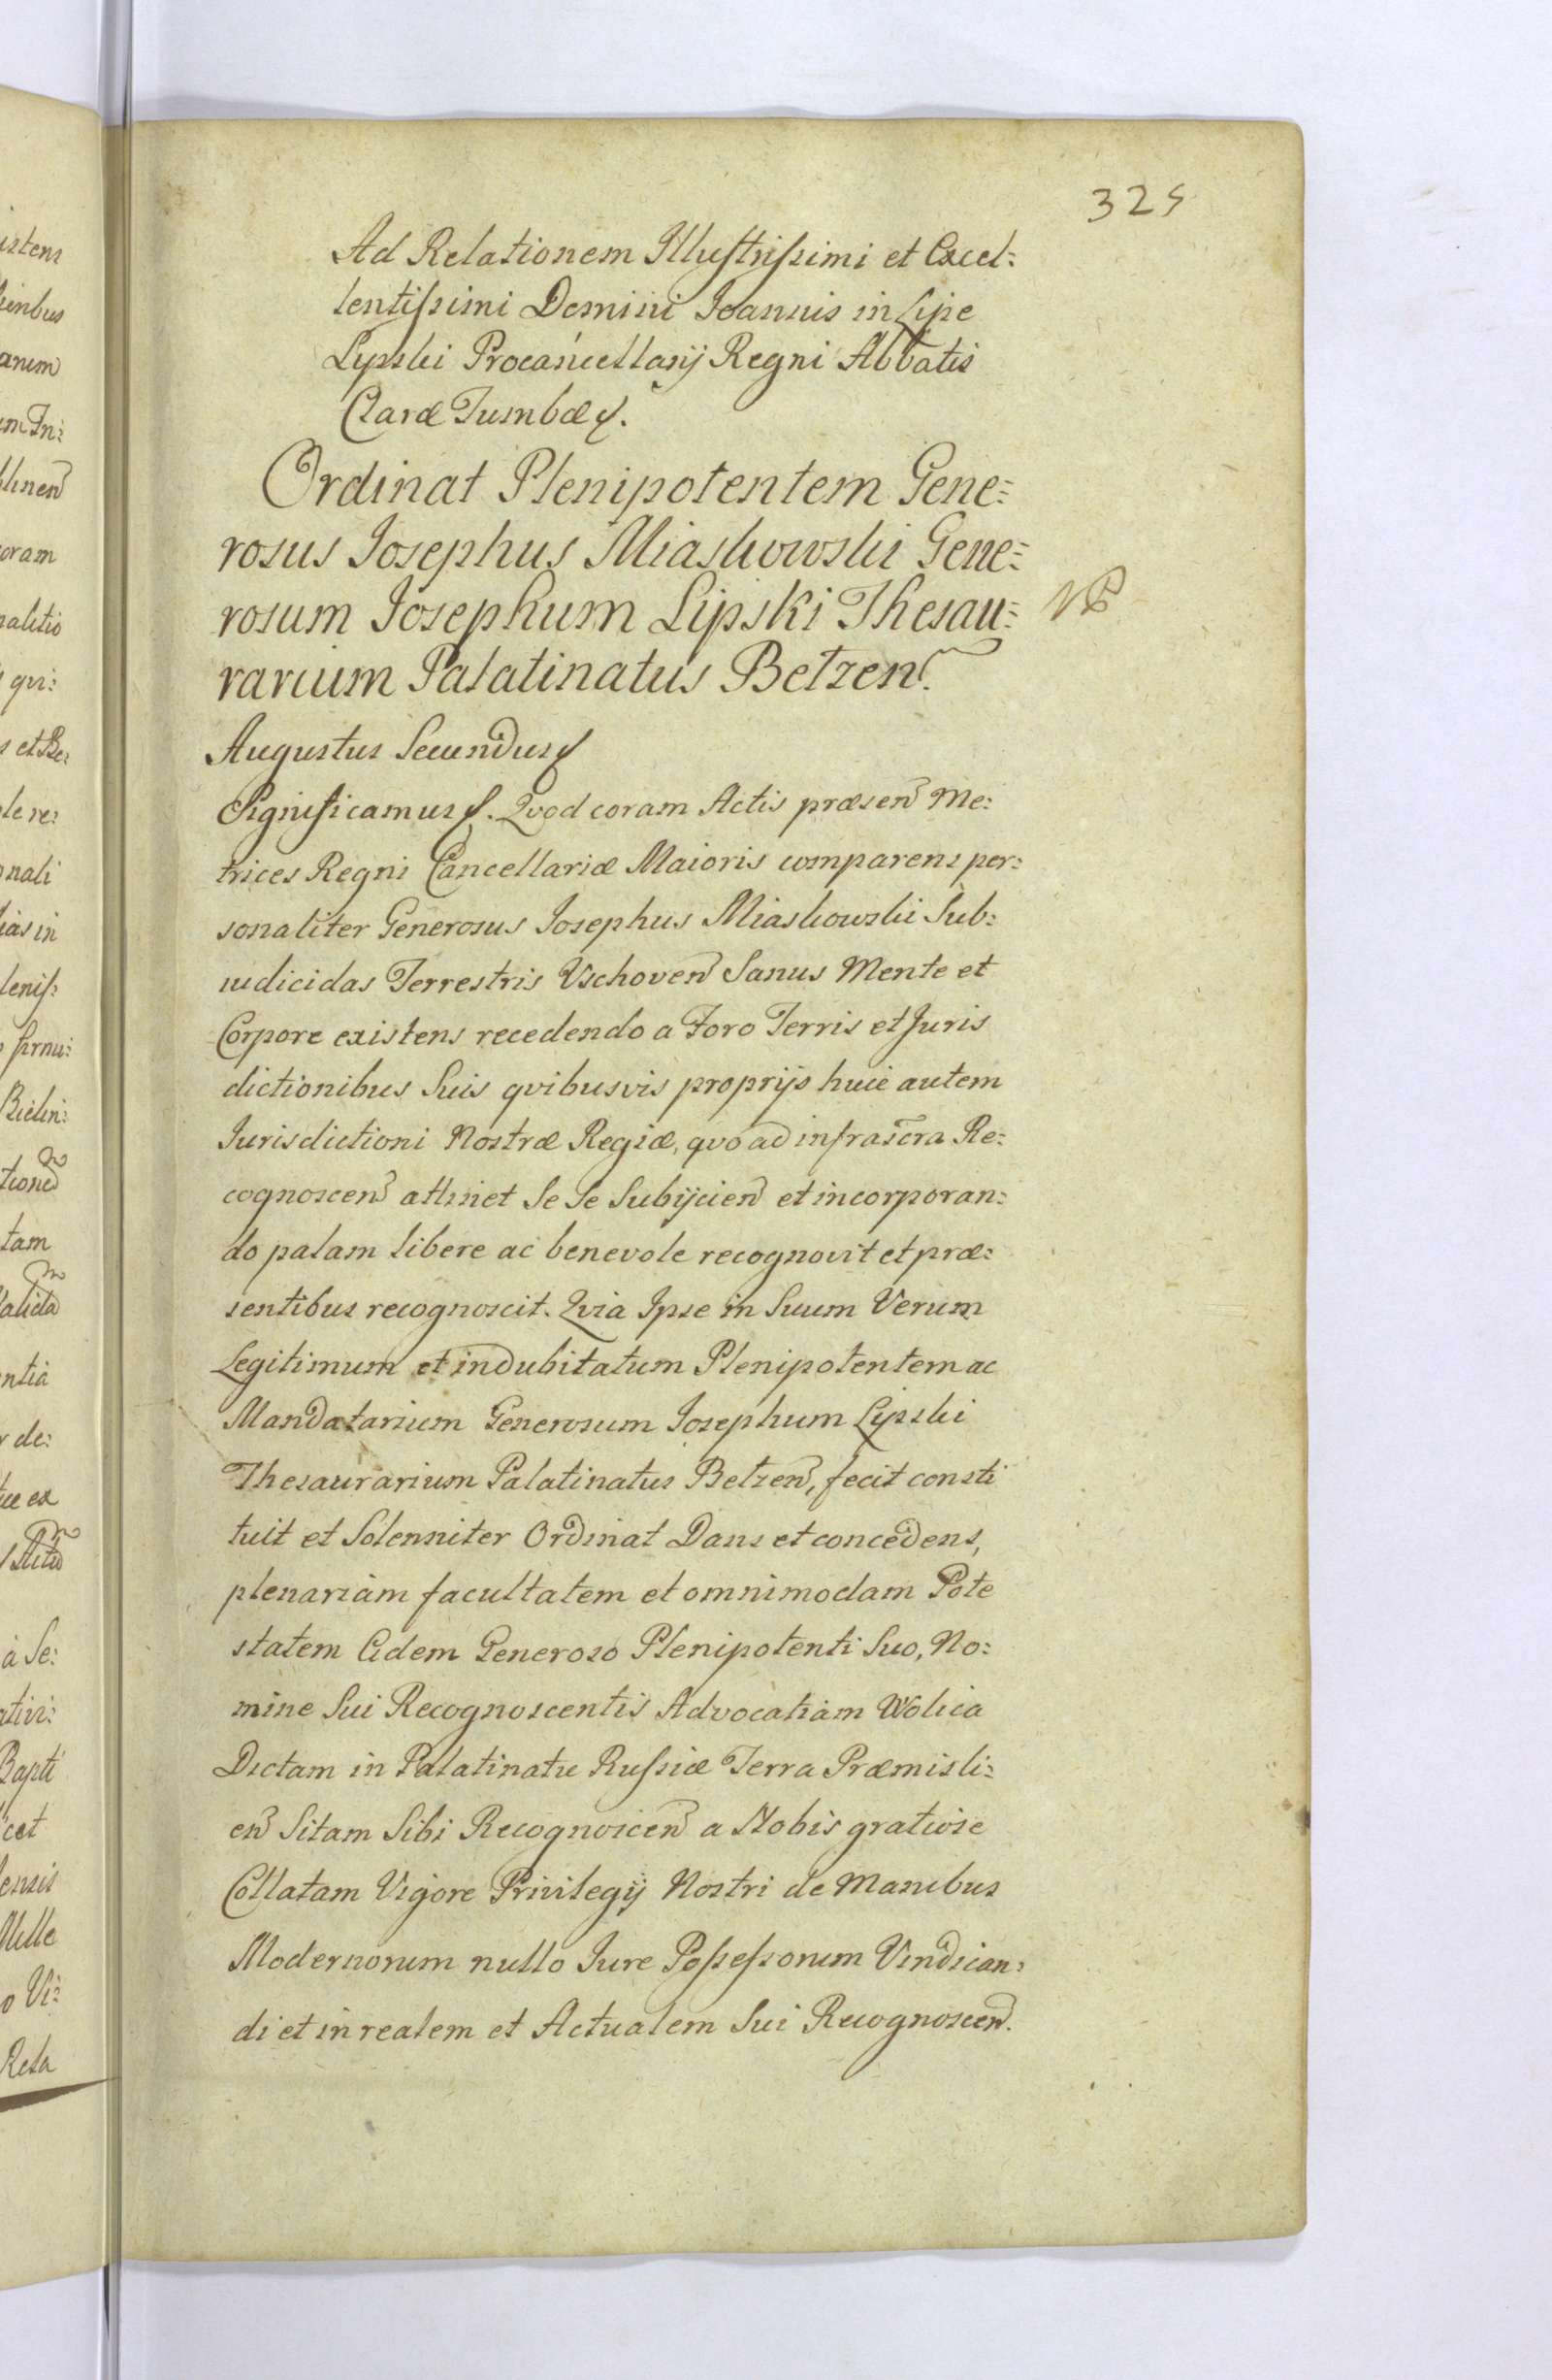 325
Ad Relationem Illustrissimi et Excel:
lentissimi Domini Joannis in Lipe
Lypski Procancellarij Regni Abbatis
Claræ Tumbæ
Ordinat Plenipotentem Gene:
rosus Josephus Miaskowski Gene:
rosum Josephum Lipski Thesau:
rarium Palatinatus Belzen.
Augustus Secundus
Significamus. Qvod coram Actis præsen Me:
trices Regni Cancellariæ Maioris comparens per:
sonaliter Generosus Josephus Miaskowski Sub:
iudicidas Terrestris Vschoven Sanus Mente et
Corpore existens recedendo a Foro Terris et Juris
dictionibus Suis qvibusvis proprijs huic autem
Jurisdictioni Nostræ Regiæ, qvo ad infrascra Re:
cognoscen attinet Se Se Subijcien et incorporan:
do palam libere ac benevole recognovit et præ:
sentibus recognoscit. Qvia Ipse in Suum Verum
Legitimum et indubitatum Plenipotentem ac
Mandatarium Generosum Josephum Lipski
Thesaurarium Palatinatus Belzen, fecit consti
tuit et Solenniter Ordinat Dans et concedens,
plenariam facultatem et omnimodam Pote
statem Eidem Generoso Plenipotenti Suo, No:
mine Sui Recognoscentis Advocatiam Wolica
Dictam in Palatinatu Russiæ Terra Præmisli:
en Sitam Sibi Recognoscen a Nobis gratiose
Collatam Vigore Privilegij Nostri de Manibus
Modernorum nullo Jure Possessorum Vindican:
di et in realem et Actualem Sui Recognoscen.